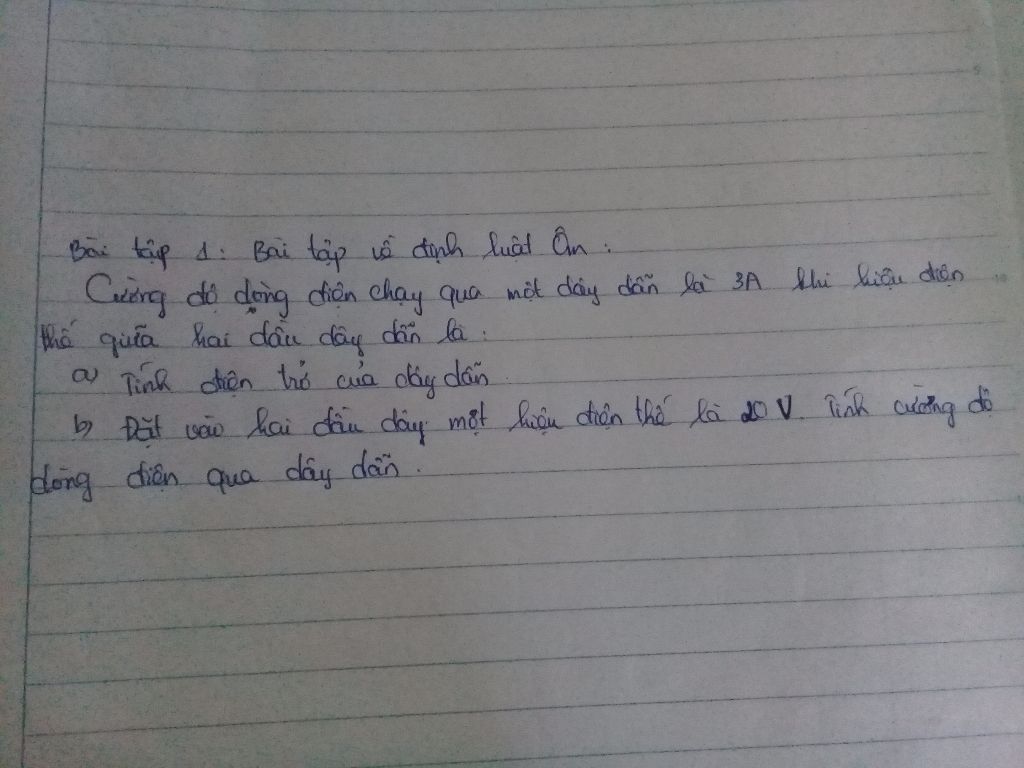 Bài tập 1: Bài tập về định luật Ôn:
Cường độ dòng điện chạy qua một dây dẫn là 3A khi hiệu điện
thế giữa hai đầu dây dẫn là:
a) Tính điện trở của dây dẫn.
b) Đặt vào hai đầu dây một hiệu điện thế là 20 V. Tính cường độ
dòng điện qua dây dẫn.